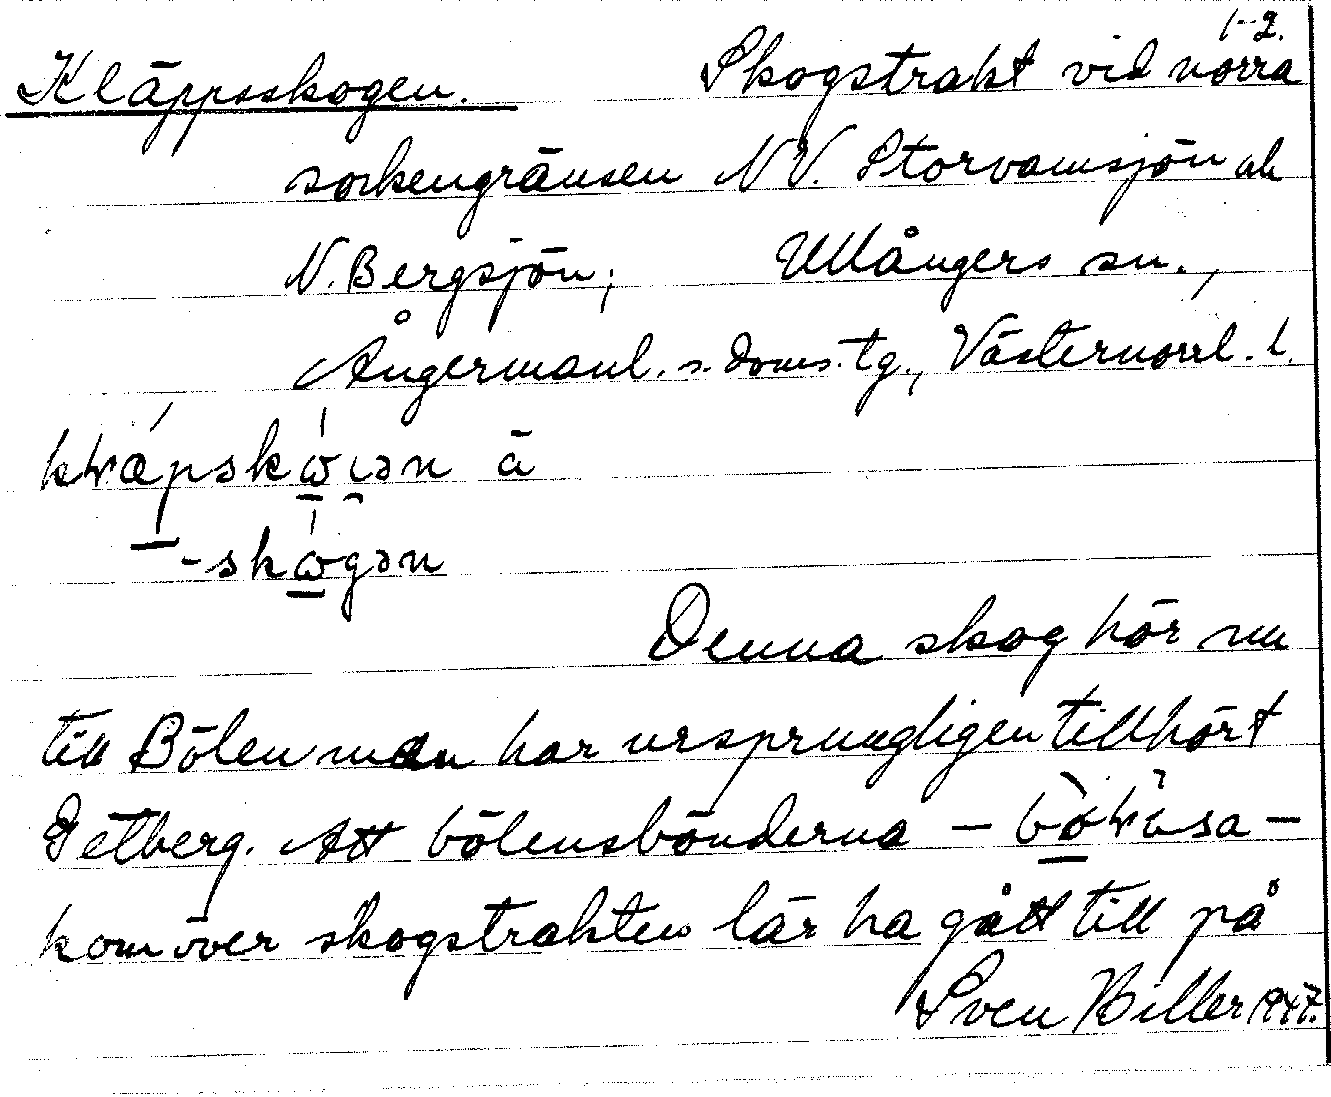 1-2.
Kläppsskogen. Skogstrakt vid norra
sockengränsen NV. Storvamsjön ok
N. Bergsjön; Ullångers sn.,
Ångermanl. s. doms. tg., Västernorrl. l.
å
-skω̱gən
Denna skog hör nu
till Bölen men har ursprungligen tillhört
Getberg. Att bölensbönderna —
kom över skogstrakten lär ha gått till på
Sven Biller 1947.